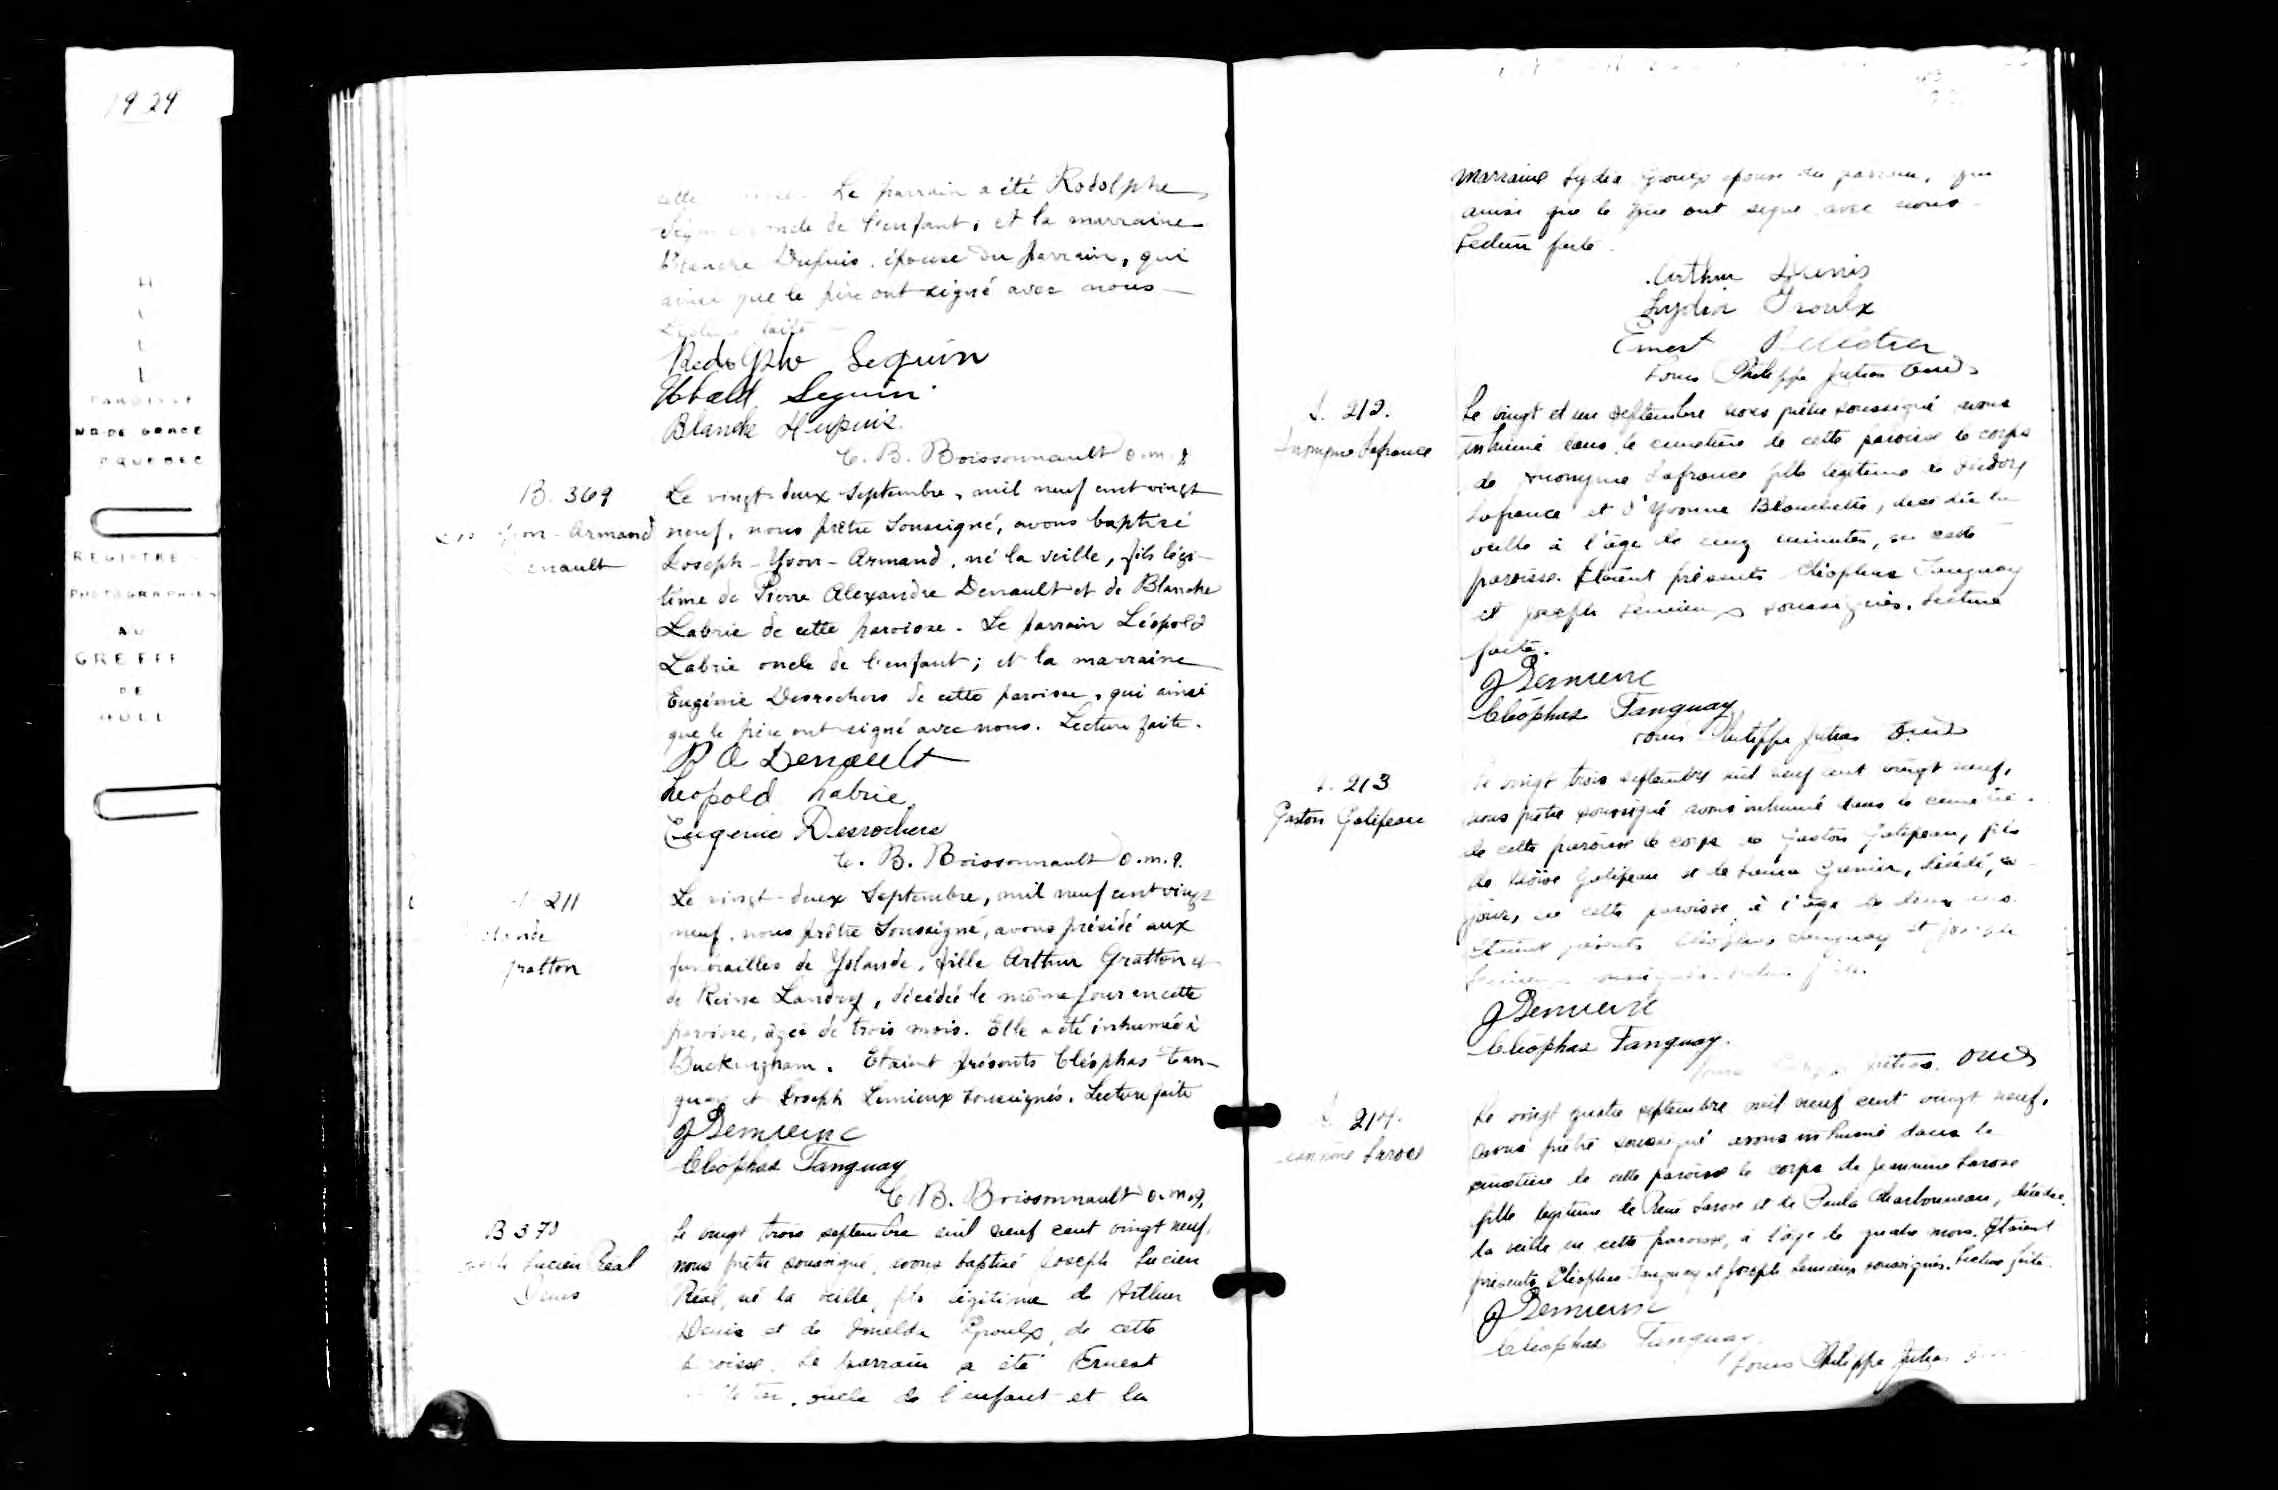 1929
H
L
L
PAROISSE
ND DE GRACE
QUEBEC
REGISTRE
PHOTOGRAPHIES
AU
GREFFE
DE
HULL
cette Le parrain a été Rodolphe
oncle de l'enfant; et la marraine
Blanche Dupuis, épouse du parrain, qui
ainsi que le père ont signé avec nous
Lecture faite
Rodolphe Seguin
Ubald Seguin
Blanche Dupuis
C. B. Boissonnault o.m.i.
B. 369
Yvon-Armand
Denault
Le vingt-deux septembre, mil neuf cent vingt
neuf, nous prêtre soussigné, avons baptisé
Joseph-Yvon-Armand, né la veille, fils légi-
time de Pierre Alexandre Denault et de Blanche
Labrie de cette paroisse. Le parrain Léopold
Labrie oncle de l'enfant; et la marraine
Eugénie Desrochers de cette paroisse, qui ainsi
que le père ont signé avec nous. Lecture faite.
P A Denault
Léopold Labrie
Eugenie Desrochers
C. B. Boissonnault o.m.i.
211
Gratton
Le vingt-deux Septembre, mil neuf cent vingt
neuf, nous prêtre soussigné, avons présidé aux
funérailles de Yolande, fille Arthur Gratton et
de Reine Landry, décédée le même jour en cette
paroisse, âgée de trois mois. Elle a été inhumée à
Buckingham. Etaient présents Cléophas Tan-
guay et Joseph Lemieux soussignés. Lecture faite
J Lemieux
Cléophas Tanguay
C. B. Boissonnault o.m.i.
B 370
Lucien Réal
Denis
Le vingt trois septembre mil neuf cent vingt neuf,
nous prêtre soussigné, avons baptisé Joseph Lucien
Réal, né la veille, fils légitime de Arthur
Denis et de Imelda Groulx, de cette
paroisse. Le parrain a été Ernest
oncle de l'enfant et la
marraine Lydia Groulx épouse du parrain, qui
ainsi que le père ont signé avec nous
Lecture faite.
Arthur Denis
Lydia Groulx
Ernest Pelletier
Louis Philippe Jutras o.m.i.
S. 212.
Anonyme Lafrance
Le vingt et un septembre nous prêtre soussigné avons
inhumé dans le cimetière de cette paroisse le corps
de Anonyme Lafrance fille légitime de
Lafrance et d'Yvonne Blanchette, décédée la
veille à l'âge de cinq minutes, en cette
paroisse. Etaient présents Cléophas Tanguay
et Joseph Lemieux soussignés. Lecture
faite.
J Lemieux
Cléophas Tanguay
Louis Philippe Jutras o.m.i.
S. 213
Gaston Galipeau
Le vingt trois septembre mil neuf cent vingt neuf,
nous prêtre soussigné avons inhumé dans le cimetière
de cette paroisse le corps de Gaston Galipeau, fils
de Galipeau et de Grenier, décédé, ce
jour, en cette paroisse, à l'âge de deux ans.
Etaient présents Cléophas Tanguay et Joseph
Lemieux soussignés. Lecture faite.
J Lemieux
Cléophas Tanguay.
Jutras. o.m.i.
S. 214.
Jeannine Larose
Le vingt quatre septembre mil neuf cent vingt neuf,
nous prêtre soussigné avons inhumé dans le
cimetière de cette paroisse le corps de Jeannine Larose
fille légitime de René Larose et de Paula Charbonneau, décédée
la veille en cette paroisse, à l'âge de quatre mois. Etaient
présents Cléophas Tanguay et Joseph Lemieux soussignés. Lecture faite.
J Lemieux
Cléophas Tanguay
Louis Philippe Jutras